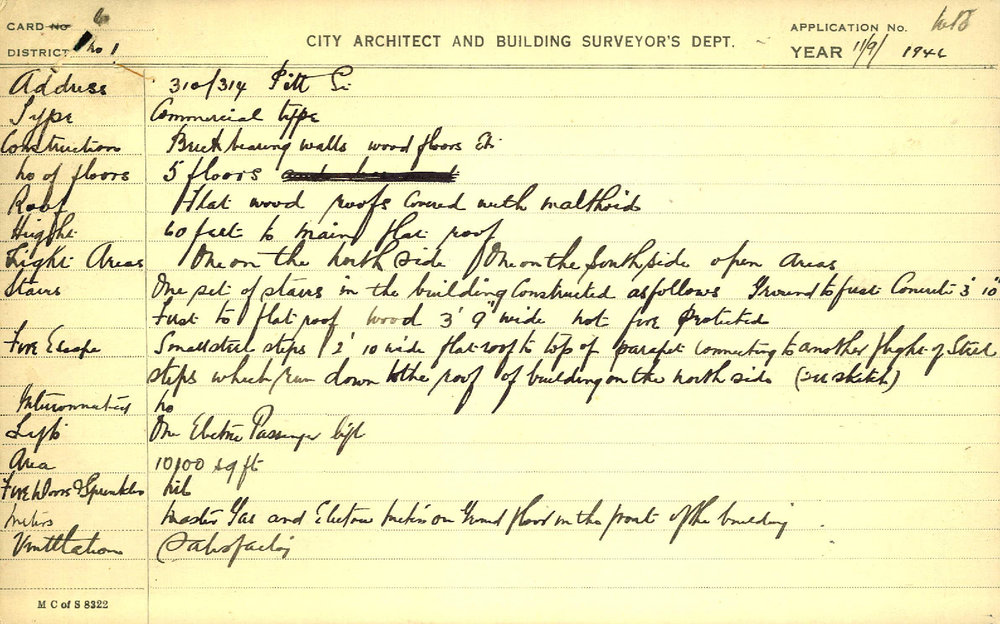 CARD No 6
APPLICATION No.
DISTRICT No 1
CITY ARCHITECT AND BUILDING SURVEYOR'S DEPT.
YEAR 11/9/ 1942
Address 310/314 Pitt St
Type Commercial type
Construction Brick bearing walls wood floors Etc
No of floors 5 floors
Roof Flat wood roofs covered with malthoid
Hight 60 feet to main flat roof
Light Areas One on the North side One on the South side open areas
Stairs One set of stairs in the building Constructed as follows Ground to first Concrete 3' 10"
First to flat roof wood 3' 9" wide not fire protected
Fire Escape Small steel steps 2' 10 wide flat roof to top of parapet connecting to another flight of Steel
steps which run down to the roof of building on the north side (see sketch)
Interconnected No
Lifts One Electric Passenger lift
Area 10100 sq ft
Fire Doors & Sprinklers Nil
Meters Master Gas and Electric Meters on Ground floor in the front of the building
Ventilation Satisfactory
M C of S 8322